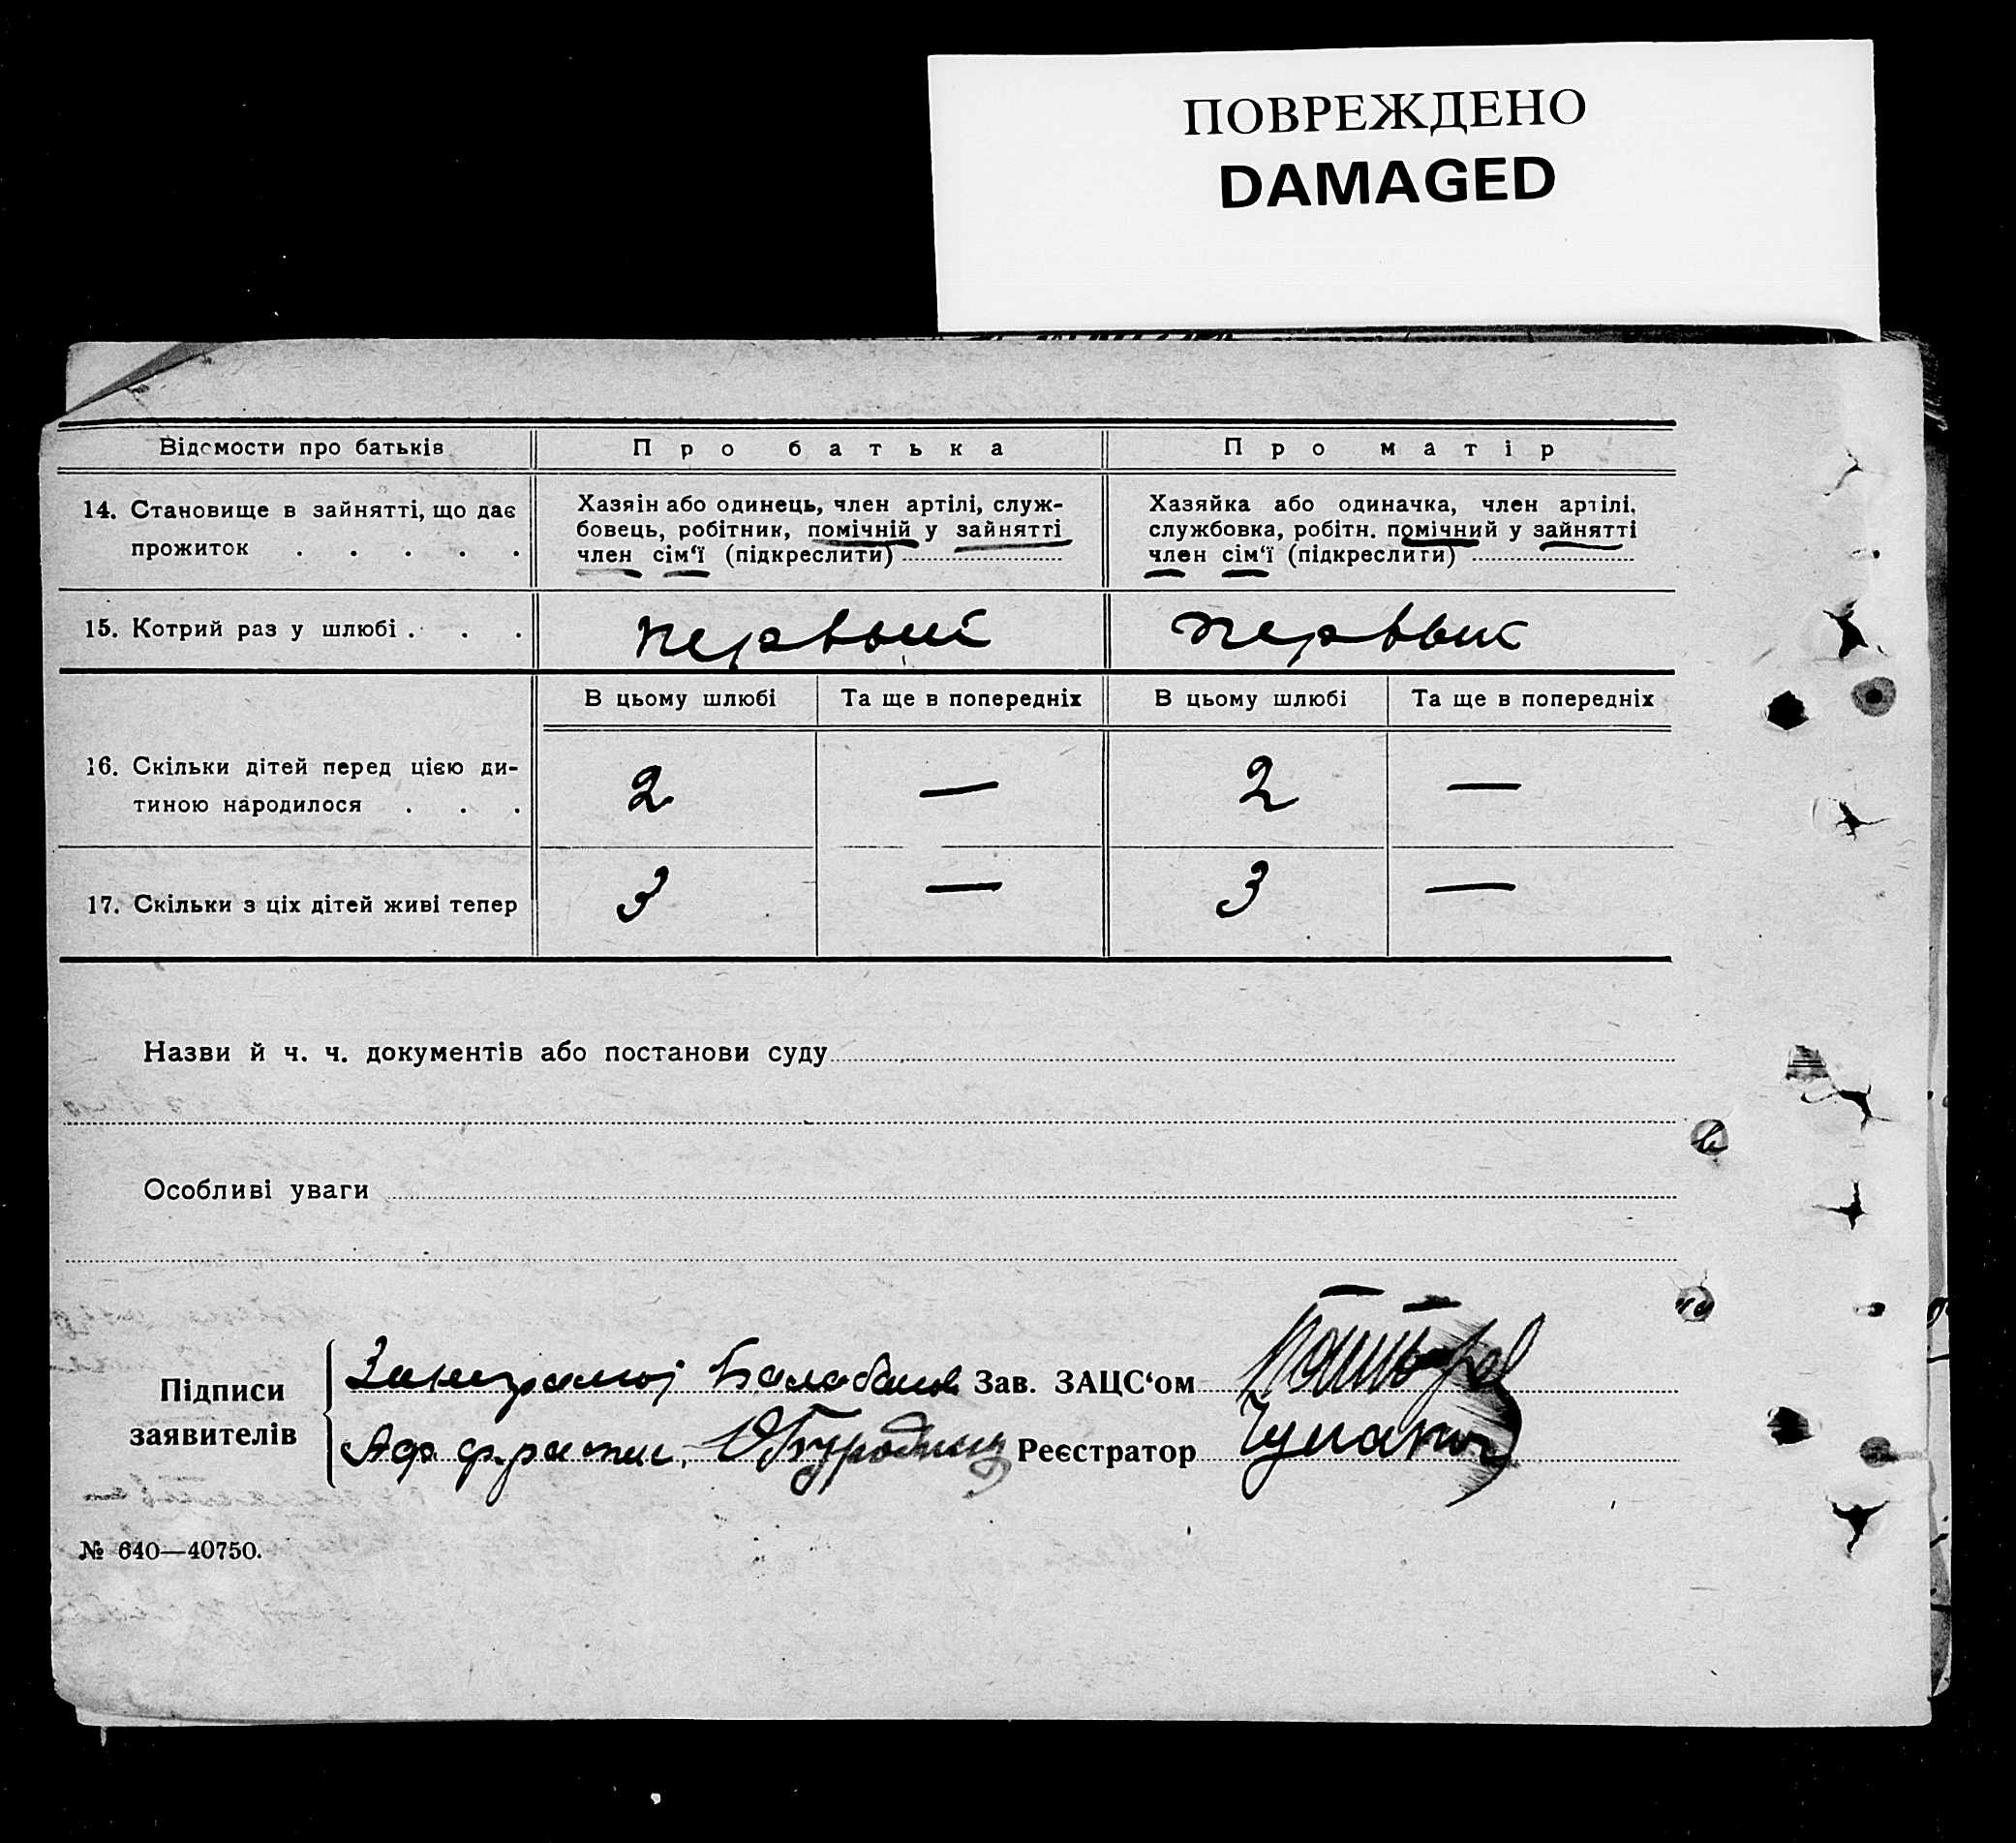 ПОВРЕЖДЕНО
DAMAGED
Відомости про батьків
Про батька
Про матір
14. Становище в зайнятті, що дає
прожиток . . . . .
Хазяін або одинець, член артілі, служ-
бовець, робітник, помічній у зайнятті
член сім‘ї (підкреслити)
Хазяйка або одиначка, член артілі,
службовка, робітн. помічний у зайнятті
член сім‘ї (підкреслити)
15. Котрий раз у шлюбі . . .
первый
первый
В цьому шлюбі
Та ще в попередніх
В цьому шлюбі
Та ще в попередніх
16. Скільки дітей перед цією ди-
тиною народилося . . .
2
—
2
—
17. Скільки з ціх дітей живі тепер
3
—
3
—
Назви й ч. ч. документів або постанови суду
Особливі уваги
Підписи
заявителів
Балабанов
Зав. ЗАЦС‘ом
Реєстратор
№ 640—40750.